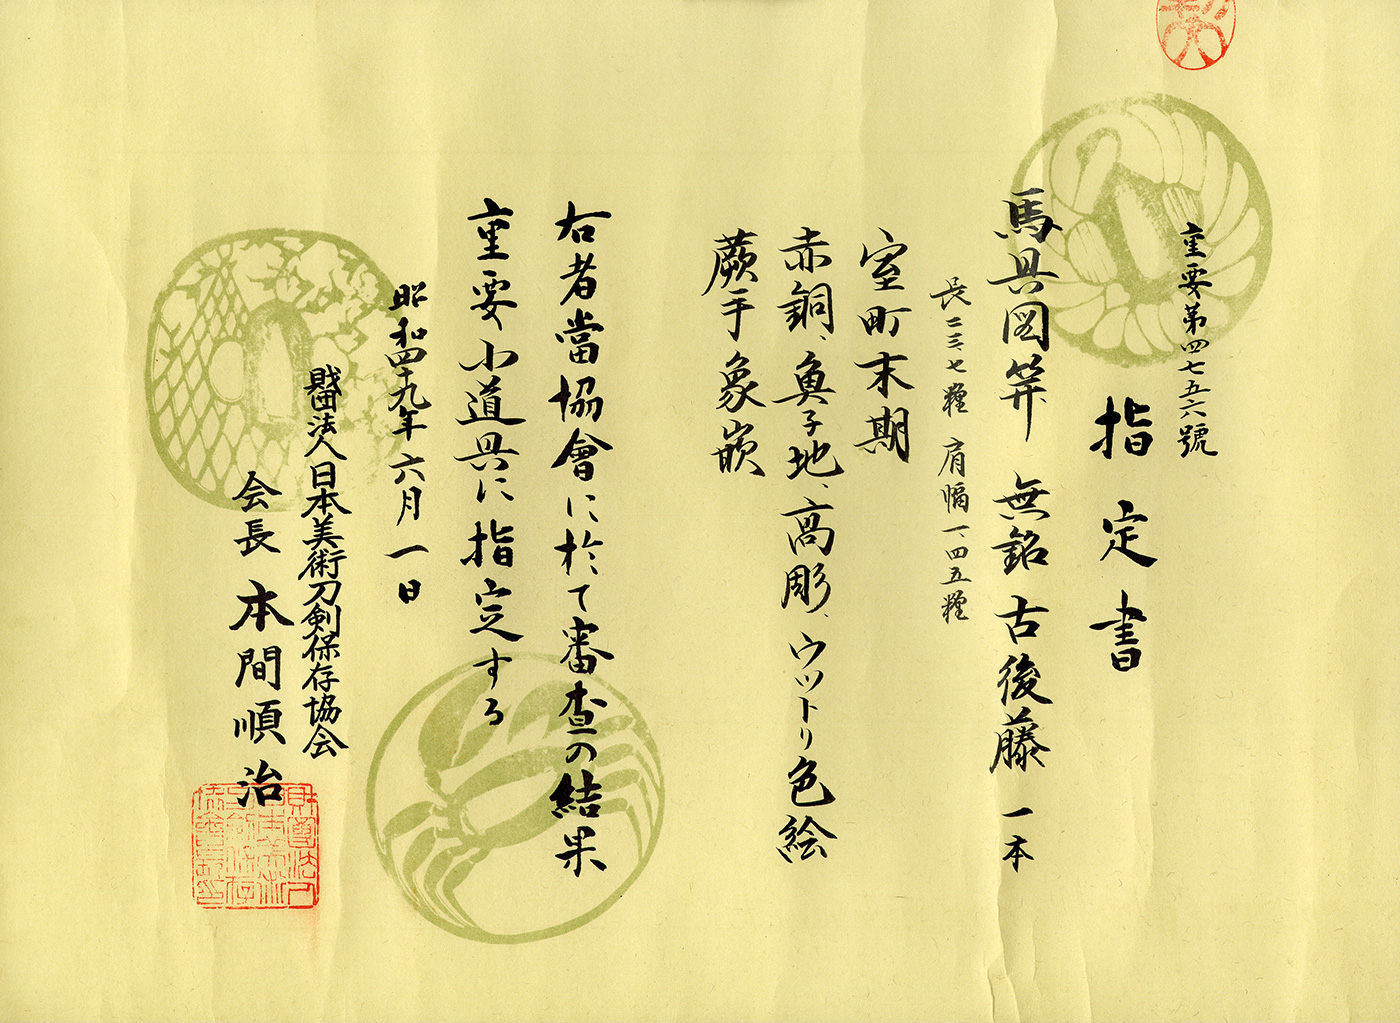 重要第四七五六號
指定書
馬具図笄 無銘 古後藤 一本
長二三、七糎 肩幅一、四五糎
室町末期
赤銅、魚子地、高彫、ウットリ色絵
蕨手象嵌
右者當協會に於て審査の結果
重要小道具に指定する
昭和四十九年六月一日
財団法人日本美術刀剣保存協会
会長 本間順治